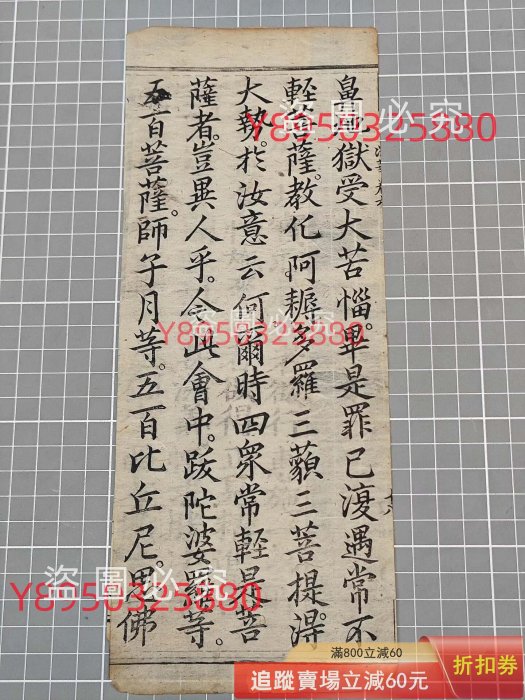 鼻地獄受大苦惱。畢是罪已復遇常不
輕菩薩。教化阿耨多羅三藐三菩提。得
大勢。於汝意云何。爾時四衆常輕是菩
薩者。豈異人乎。今此會中。跋陀婆羅等。
五百菩薩。師子月等。五百比丘尼。思佛
盜圖必究
Y8950325330
盜圖必究
Y8950325330
盜圖必究
Y8950325330
滿800立減60
追蹤賣場立減60元
折扣券